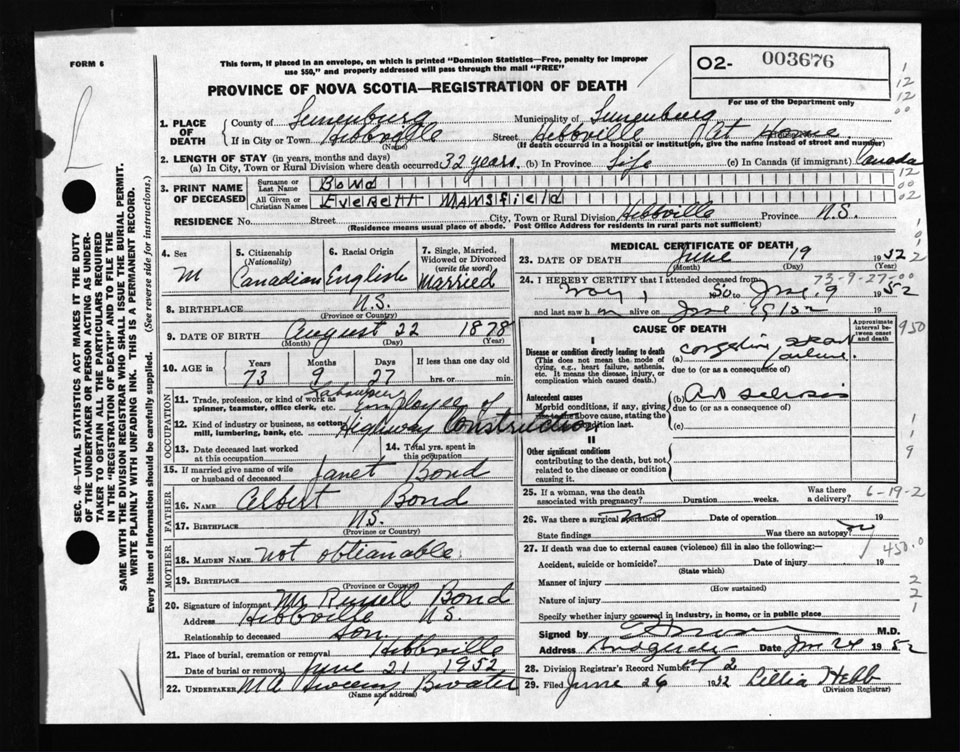 FORM 6
This form, if placed in an envelope, on which is printed "Dominion Statistics—Free, penalty for improper
use $50," and properly addressed will pass through the mail "FREE"
O2- 003676
For use of the Department only
PROVINCE OF NOVA SCOTIA—REGISTRATION OF DEATH
1. PLACE OF DEATH
County of Lunenburg Municipality of Lunenburg
If in City or Town Hebbville (Name) Street Hebbville At Home
(If death occurred in a hospital or institution, give the name instead of street and number)
2. LENGTH OF STAY (in years, months and days)
(a) In City, Town or Rural Division where death occurred 32 years. (b) In Province Life (c) In Canada (if immigrant) Canada
3. PRINT NAME OF DECEASED
Surname or Last Name Bond
All Given or Christian Names Everett Mansfield
RESIDENCE No. Street City, Town or Rural Division Hebbville Province N.S.
(Residence means usual place of abode. Post Office Address for residents in rural parts not sufficient)
4. Sex M
5. Citizenship (Nationality) Canadian
6. Racial Origin English
7. Single, Married, Widowed or Divorced (write the word) Married
8. BIRTHPLACE N.S.
(Province or Country)
9. DATE OF BIRTH August 22 1878
(Month) (Day) (Year)
10. AGE in Years 73 Months 9 Days 27 If less than one day old hrs. or min.
OCCUPATION
11. Trade, profession, or kind of work as spinner, teamster, office clerk, etc. Labourer Employee of
12. Kind of industry or business, as cotton mill, lumbering, bank, etc. Highway Construction
13. Date deceased last worked at this occupation
14. Total yrs. spent in this occupation
15. If married give name of wife or husband of deceased Janet Bond
FATHER
16. Name Albert Bond
17. Birthplace N.S.
(Province or Country)
MOTHER
18. Maiden Name not obtianable
19. Birthplace
(Province or Country)
20. Signature of informant Mr Russell Bond
Address Hebbville N.S.
Relationship to deceased son.
21. Place of burial, cremation or removal Hebbville
Date of burial or removal June 21 1952
22. Undertaker
(Name and address)
MEDICAL CERTIFICATE OF DEATH
23. DATE OF DEATH June 19 1952
(Month) (Day) (Year)
73-9-27-00
24. I HEREBY CERTIFY that I attended deceased from
May 1 1950 to June 9 1952
and last saw h m alive on June 9 1952
CAUSE OF DEATH
Approximate interval between onset and death
I
Disease or condition directly leading to death
(This does not mean the mode of dying, e.g., heart failure, asthenia, etc. It means the disease, injury, or complication which caused death.)
(a) congestive heart failure.
due to (or as a consequence of)
Antecedent causes
Morbid conditions, if any, giving rise to the above cause, stating the underlying condition last.
(b)
due to (or as a consequence of)
(c)
II
Other significant conditions
contributing to the death, but not related to the disease or condition causing it.
25. If a woman, was the death associated with pregnancy? Duration weeks. Was there a delivery? 6-19-2
26. Was there a surgical operation? Date of operation 19
State findings Was there an autopsy?
27. If death was due to external causes (violence) fill in also the following:— 450.0
Accident, suicide or homicide? Date of injury 19
(State which)
Manner of injury
(How sustained)
Nature of injury
Specify whether injury occurred in industry, in home, or in public place
Signed by M.D.
Address Date Jun 24 1952
28. Division Registrar's Record Number 2
29. Filed June 26 1952 Lillia Hebb
(Division Registrar)
SEC. 46—VITAL STATISTICS ACT MAKES IT THE DUTY
OF THE UNDERTAKER OR PERSON ACTING AS UNDER-
TAKER TO OBTAIN ALL THE PARTICULARS REQUIRED
IN THE "REGISTRATION OF DEATH" AND TO FILE THE
SAME WITH THE DIVISION REGISTRAR WHO SHALL ISSUE THE BURIAL PERMIT.
WRITE PLAINLY WITH UNFADING INK. THIS IS A PERMANENT RECORD.
Every item of information should be carefully supplied. (See reverse side for instructions.)